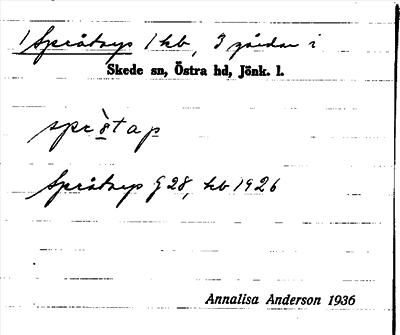 1 Språtorp 1 kb, 3 gårdar i
Skede sn, Östra hd, Jönk. l.
Språtorp G28, kb 1926
Annalisa Anderson 1936